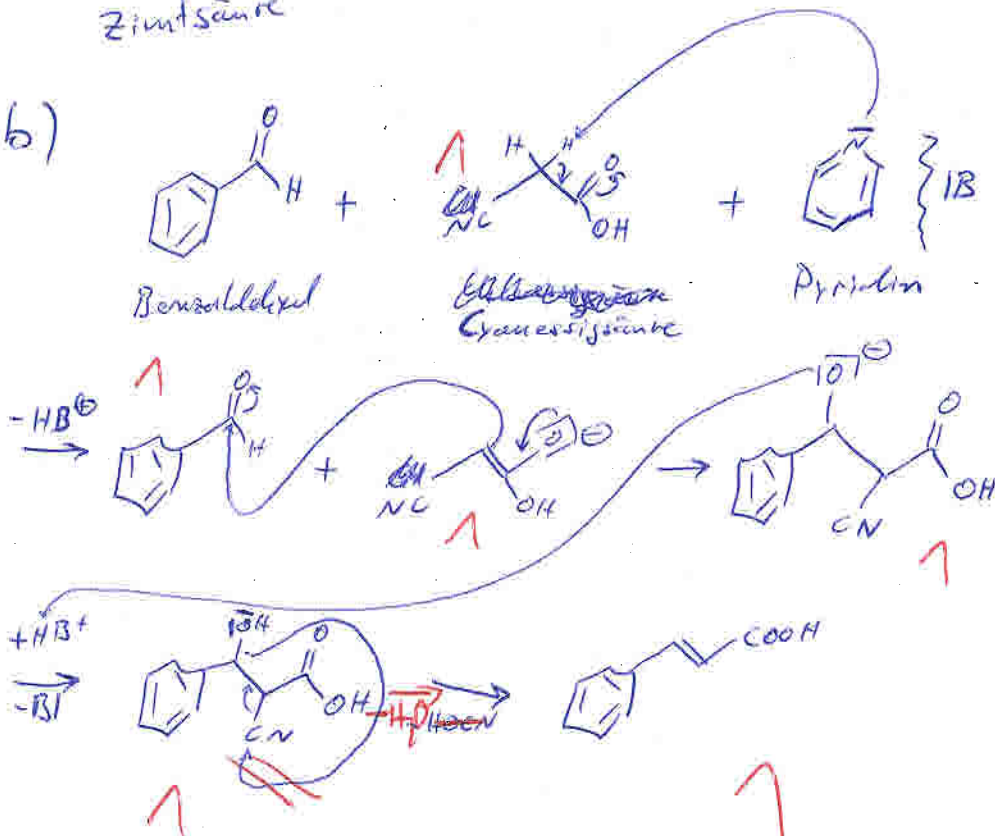 Zimtsäure
b)
O
H
+
H H
NC
O
OH
+
N
} IB
Benzaldehyd
Cyanessigsäure
Pyridin
-HB⊕
O
H
+
NC
O ⊖
OH
O ⊖
O
OH
CN
+HB+
-BI
OH
O
OH
CN
-H2O
COOH